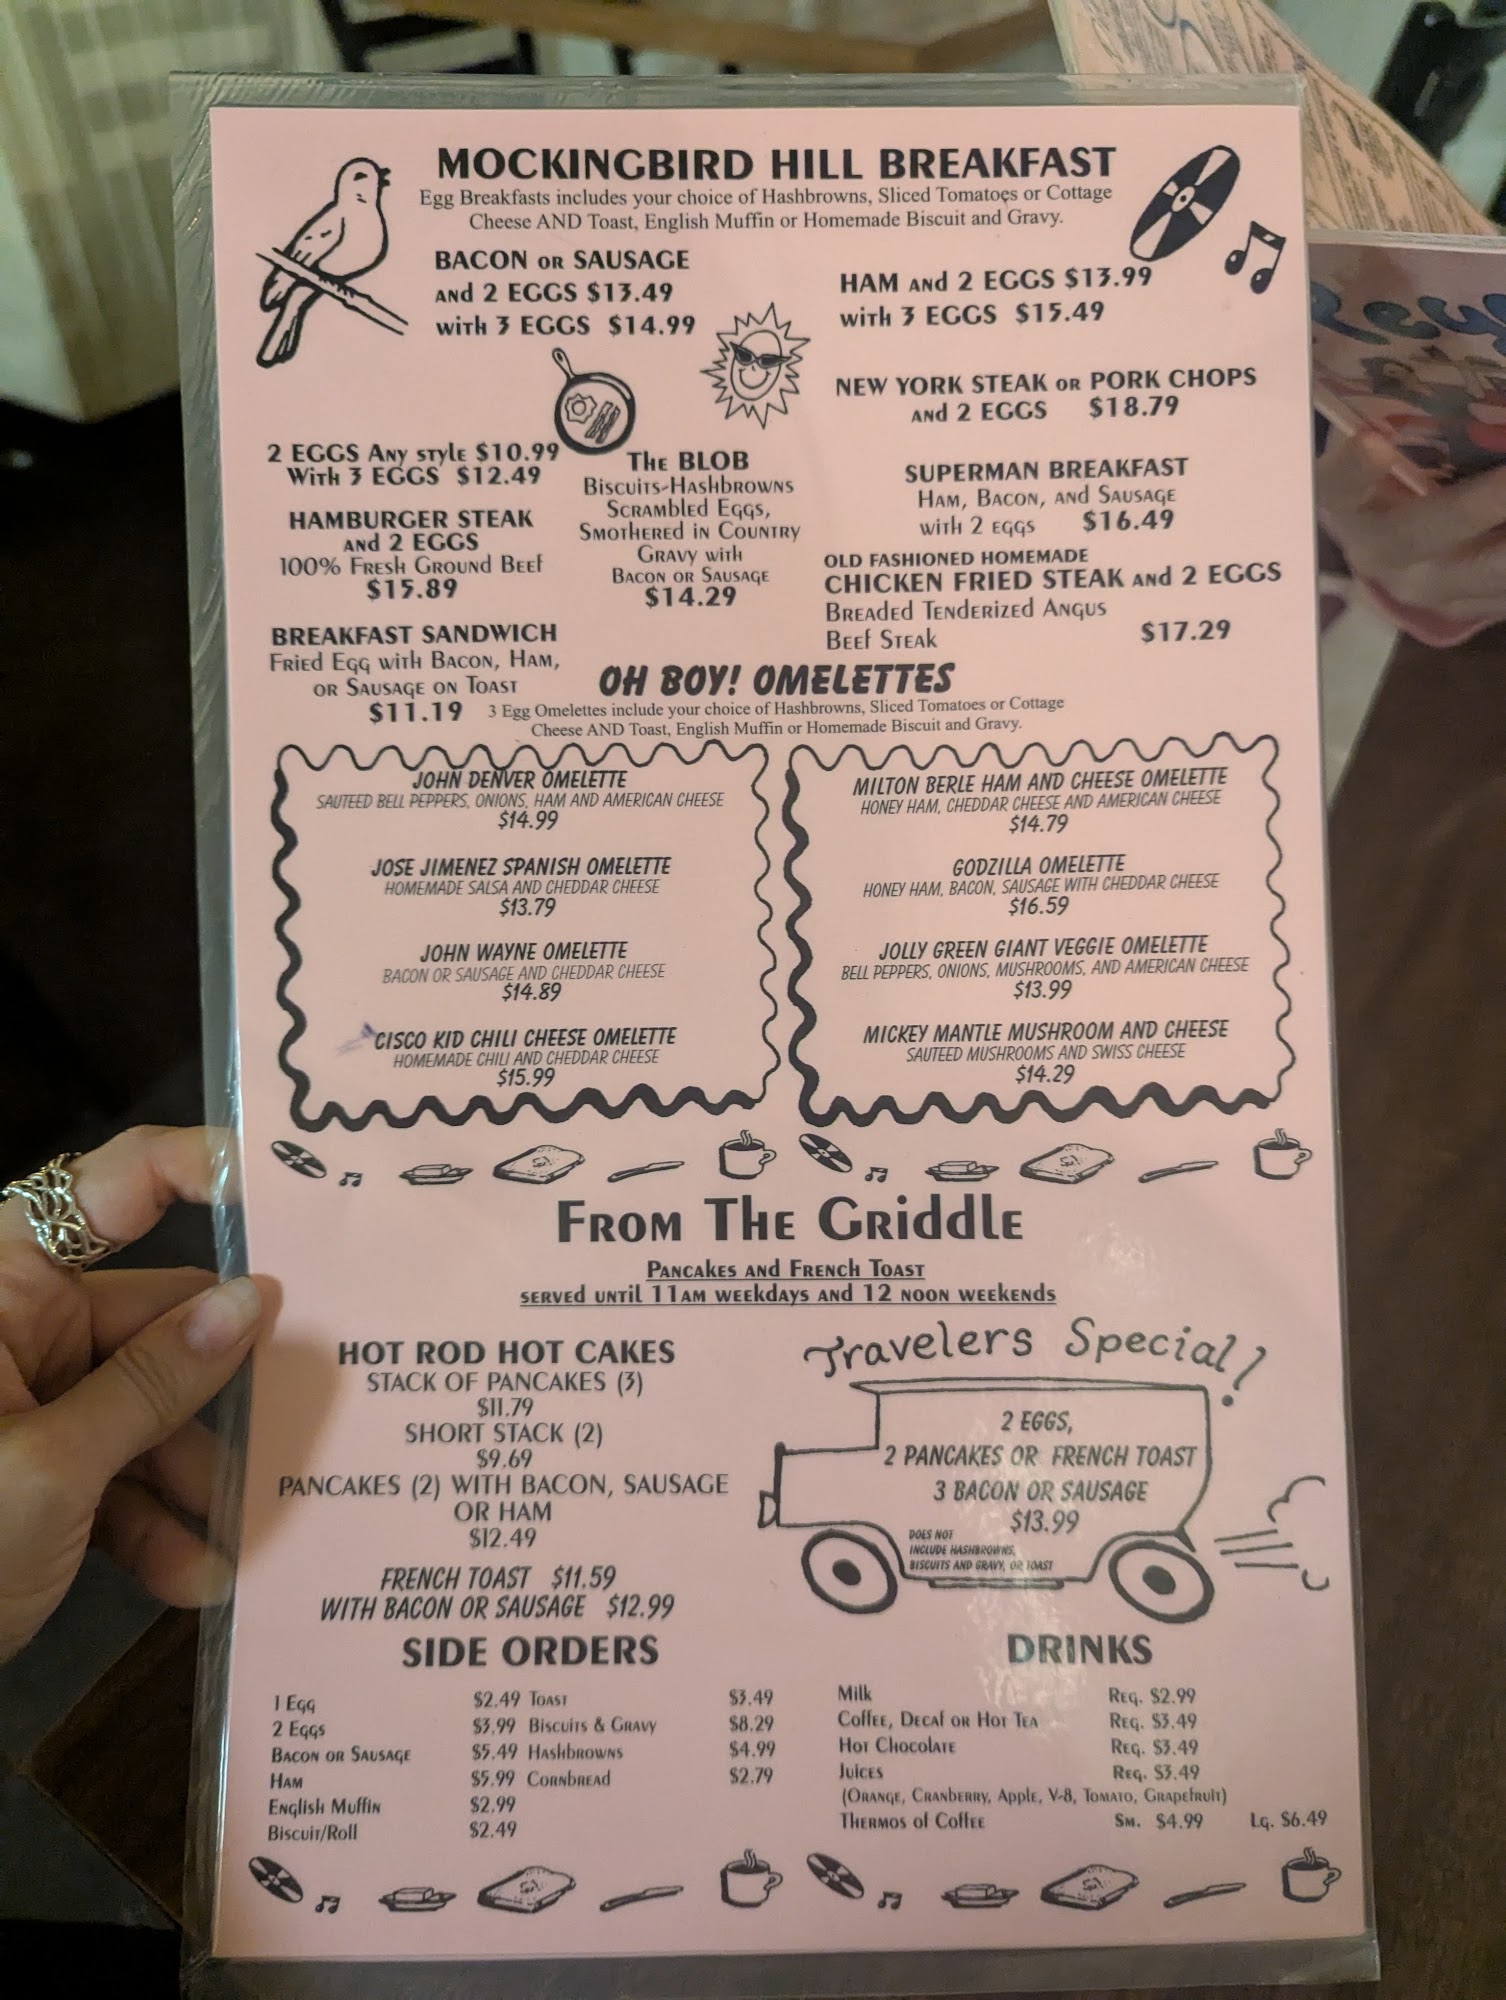 MOCKINGBIRD HILL BREAKFAST
Egg Breakfasts includes your choice of Hashbrowns, Sliced Tomatoes or Cottage
Cheese AND Toast, English Muffin or Homemade Biscuit and Gravy.
BACON OR SAUSAGE
AND 2 EGGS $13.49
WITH 3 EGGS $14.99
HAM AND 2 EGGS $13.99
WITH 3 EGGS $15.49
NEW YORK STEAK OR PORK CHOPS
AND 2 EGGS $18.79
2 EGGS ANY STYLE $10.99
WITH 3 EGGS $12.49
HAMBURGER STEAK
AND 2 EGGS
100% FRESH GROUND BEEF
$15.89
BREAKFAST SANDWICH
FRIED EGG WITH BACON, HAM,
OR SAUSAGE ON TOAST
$11.19
THE BLOB
BISCUITS-HASHBROWNS
SCRAMBLED EGGS,
SMOTHERED IN COUNTRY
GRAVY WITH
BACON OR SAUSAGE
$14.29
SUPERMAN BREAKFAST
HAM, BACON, AND SAUSAGE
WITH 2 EGGS $16.49
OLD FASHIONED HOMEMADE
CHICKEN FRIED STEAK AND 2 EGGS
BREADED TENDERIZED ANGUS
BEEF STEAK $17.29
OH BOY! OMELETTES
3 Egg Omelettes include your choice of Hashbrowns, Sliced Tomatoes or Cottage
Cheese AND Toast, English Muffin or Homemade Biscuit and Gravy.
JOHN DENVER OMELETTE
SAUTEED BELL PEPPERS, ONIONS, HAM AND AMERICAN CHEESE
$14.99
JOSE JIMENEZ SPANISH OMELETTE
HOMEMADE SALSA AND CHEDDAR CHEESE
$13.79
JOHN WAYNE OMELETTE
BACON OR SAUSAGE AND CHEDDAR CHEESE
$14.89
CISCO KID CHILI CHEESE OMELETTE
HOMEMADE CHILI AND CHEDDAR CHEESE
$15.99
MILTON BERLE HAM AND CHEESE OMELETTE
HONEY HAM, CHEDDAR CHEESE AND AMERICAN CHEESE
$14.79
GODZILLA OMELETTE
HONEY HAM, BACON, SAUSAGE WITH CHEDDAR CHEESE
$16.59
JOLLY GREEN GIANT VEGGIE OMELETTE
BELL PEPPERS, ONIONS, MUSHROOMS, AND AMERICAN CHEESE
$13.99
MICKEY MANTLE MUSHROOM AND CHEESE
SAUTEED MUSHROOMS AND SWISS CHEESE
$14.29
FROM THE GRIDDLE
PANCAKES AND FRENCH TOAST
SERVED UNTIL 11AM WEEKDAYS AND 12 NOON WEEKENDS
HOT ROD HOT CAKES
STACK OF PANCAKES (3)
$11.79
SHORT STACK (2)
$9.69
PANCAKES (2) WITH BACON, SAUSAGE
OR HAM
$12.49
FRENCH TOAST $11.59
WITH BACON OR SAUSAGE $12.99
Travelers Special!
2 EGGS,
2 PANCAKES OR FRENCH TOAST
3 BACON OR SAUSAGE
$13.99
DOES NOT
INCLUDE HASHBROWNS,
BISCUITS AND GRAVY, OR TOAST
SIDE ORDERS
1 EGG $2.49 TOAST $3.49
2 EGGS $3.99 BISCUITS & GRAVY $8.29
BACON OR SAUSAGE $5.49 HASHBROWNS $4.99
HAM $5.99 CORNBREAD $2.79
ENGLISH MUFFIN $2.99
BISCUIT/ROLL $2.49
DRINKS
MILK REG. $2.99
COFFEE, DECAF OR HOT TEA REG. $3.49
HOT CHOCOLATE REG. $3.49
JUICES REG. $3.49
(ORANGE, CRANBERRY, APPLE, V-8, TOMATO, GRAPEFRUIT)
THERMOS OF COFFEE SM. $4.99 LG. $6.49